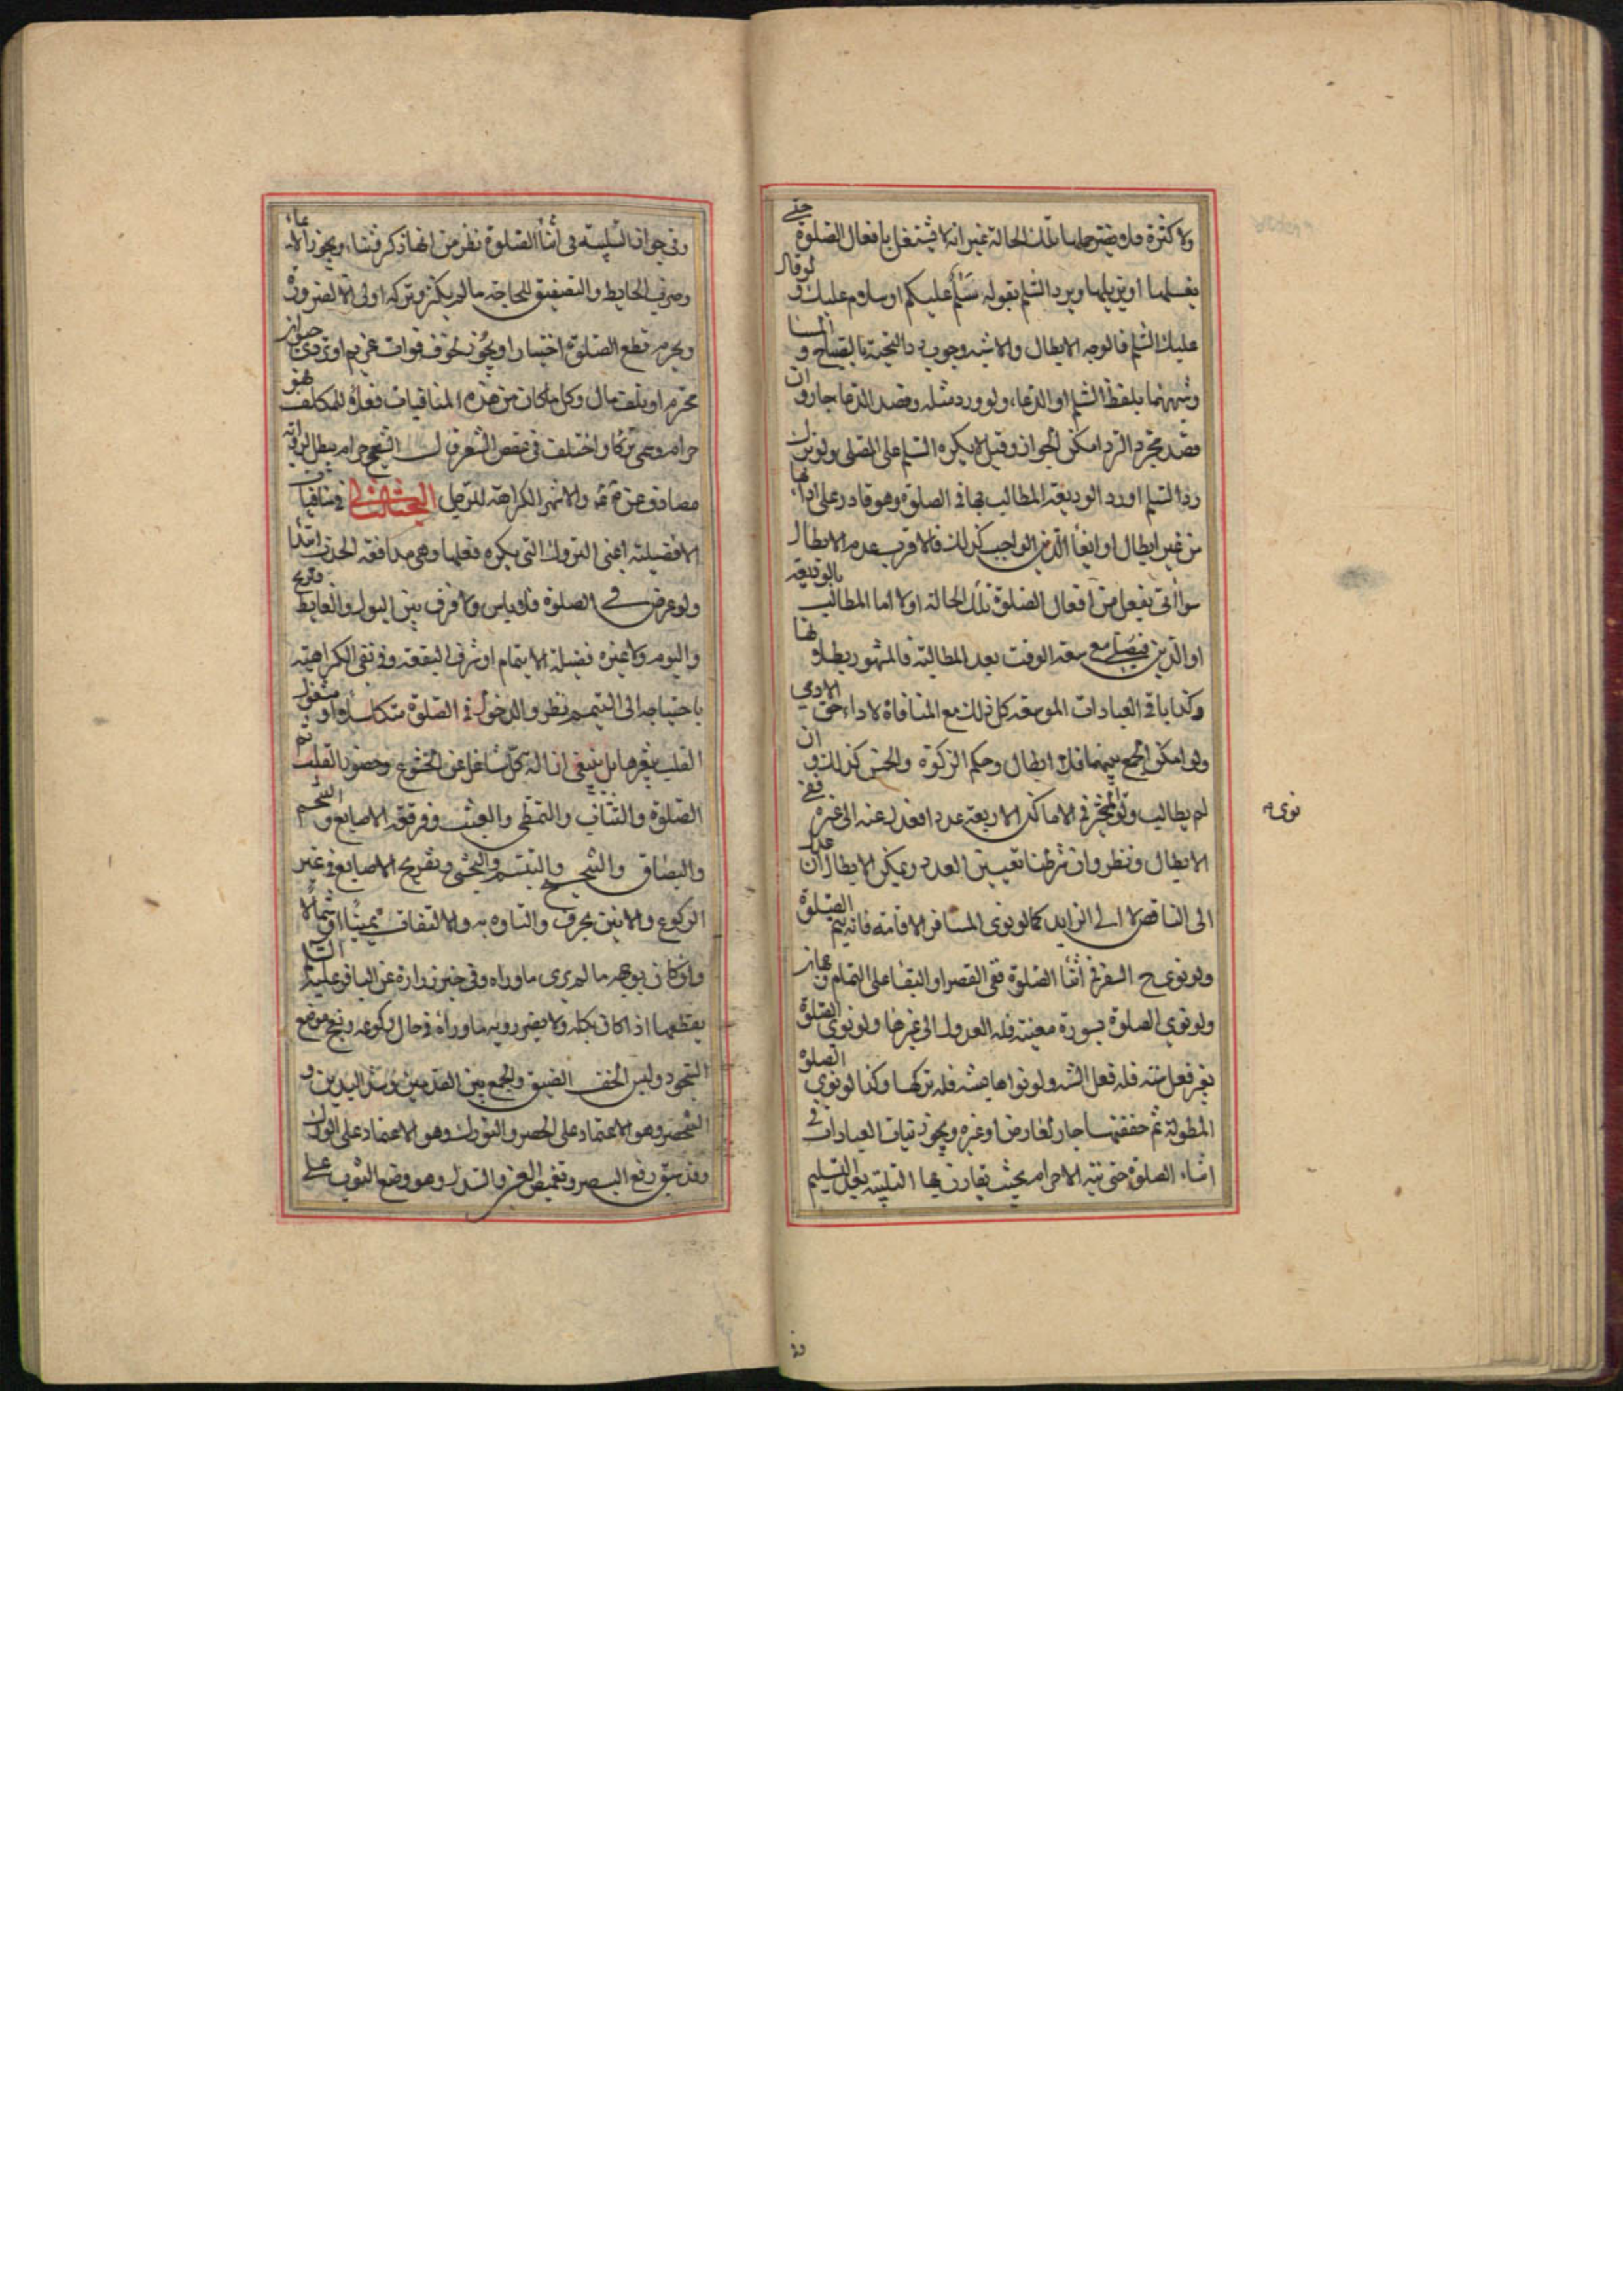 ولا كثرة فلا يضر حملها تلك الحالة غير انه لا يشتغل بافعال الصلوة حتى
يغسلها او يزيلها ويرد السلم بقوله سلم عليكم او سلام عليك ولو قال
عليك السلم فالوجه الابطال والاشبه وجوب رد التحية بالصباح والمسا
وشبههما بلفظ السلم او الدعاء ولو ورد مثله وقصد الدعا جاز وان
قصد مجرد الرد امكن الجواز وقيل لا يكره السلم على المصلى ولو ترك
رد السلم او رد الوديعة المطالب بها فى الصلوة وهو قادر على ادائها
من غير ابطال او ايفأ الدين الواجب كذلك فالاقرب عدم الابطال
سوأ اتى بفعل من افعال الصلوة تلك الحالة اولا اما المطالب بالوديعة
او الدين مع سعة الوقت بعد المطالبة فالمشهور بطلانها
وكذا باقى العبادات الموسعة كل ذلك مع المنافاة لاداء حق الادمى
ولو امكن الجمع بينهما فلا ابطال وحكم الزكوة والخمس كذلك وان
لم يطالب ولو تخير فى الاماكن الاربعة عددا فعدل عنه الى غيره ففى
الابطال نظر وان شرطنا تعيين العدد ويمكن الابطال ان عدل
الى الناقص لا الى الزايد كما لو نوى المسافر الاقامة فانه يتم الصلوة
ولو نوى ح السفر فى اثنأ الصلوة ففى القصر او البقأ على التمام
ولو نوى الصلوة بسورة معينة فله العدول الى غيرها ولو نوى الصلوة
بغير فعل سنة فله فعل السنة ولو نواها بسنة فله تركها وكذا لو نوى الصلوة
المطولة ثم خففها جاز لعارض او غيره ويجوز نيات العبادات فى
اثناء الصلوة حتى نية الاحرام بحيث يقارن بها التلبية بعد التسليم
نوى
وفى جواز التلبية فى اثنأ الصلوة نظر من انها ذكر وثناء ويجوز الايماء
وضرب الحايط والتصفيق للحاجة ما لم يكثر وتركه اولى الا لضرورة
ويحرم قطع الصلوة اختيارا ويجوز لخوف فوات غريم او تردى
محترم او تلف مال وكل ما كان من هذه المنافيات فعلا للمكلف فهو
حرام وهى تركا واختلف فى عقص الشعر قال الشيخ حرام مبطل
مصادف عن ق والاشهر الكراهة للرجل البحث الثانى فى منافيات
الافضيلة اعنى التروك التى يكره فعلها وهى مدافعة الحدث ابتدا
ولو عرض فى الصلوة فلا باس ولا فرق بين البول والغايط والريح
والنوم ولا غيره فضيلة الايتمام او شرف البقعة وفى نفى الكراهية
باحتياجه الى التيمم نظر والدخول فى الصلوة متكاسلا او مشغول
القلب بغيرها بل ينبغى ازالة كل شاغل عن الخشوع وحضور القلب ثم
الصلوة والتثأب والتمطى والعبث وفرقعة الاصابع والتنخم
والبصاق والتنحنح والتبسم والتجشى وتفريج الاصابع فى غير
الركوع والانين بحرف والتاوه به والالتفات يمينا وشمالا
وان كان بوجهه ما لم يرى ماوراه وفى خبر زرارة عن الباقر عليه السلم
يقطعها اذا كان بكله ولا يضر رويه ما ورائه فى حال ركوعه ونفخ موضع
السجود ولبس الخف الضيق والجمع بين القدمين وشد اليدين و
التخصر وهو الاعتماد على الخصر والتورك وهو الاعتماد على الورك
وقد سبق رفع البصر وتغميض العين والسدل وهو وضع الثوب على